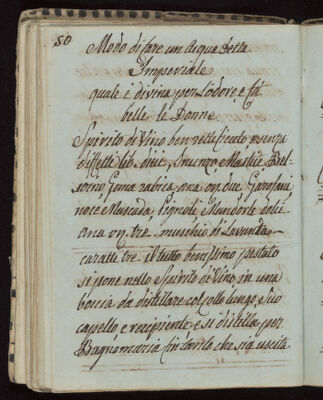 50
Modo di fare un Acqua detta
Imperiale
quale è divina per l'odore, e fà
belle le Donne
Spirito di Vino ben rettificato, e senza
difetti lib. due, Incenzo, Mastice Bel-
zoino, Goma rabica, ana on. due, Garofani,
noce Muscada, Pignoli, Mandorle dolci
ana on. tre, muschio di Levante
caratti tre, il tutto benissimo pestato
si pone nello Spirito di Vino in una
boccia da distillare col collo lungo, suo
capello, e recipiente, e si distilla per
Bagnomaria fin tanto che sia uscita